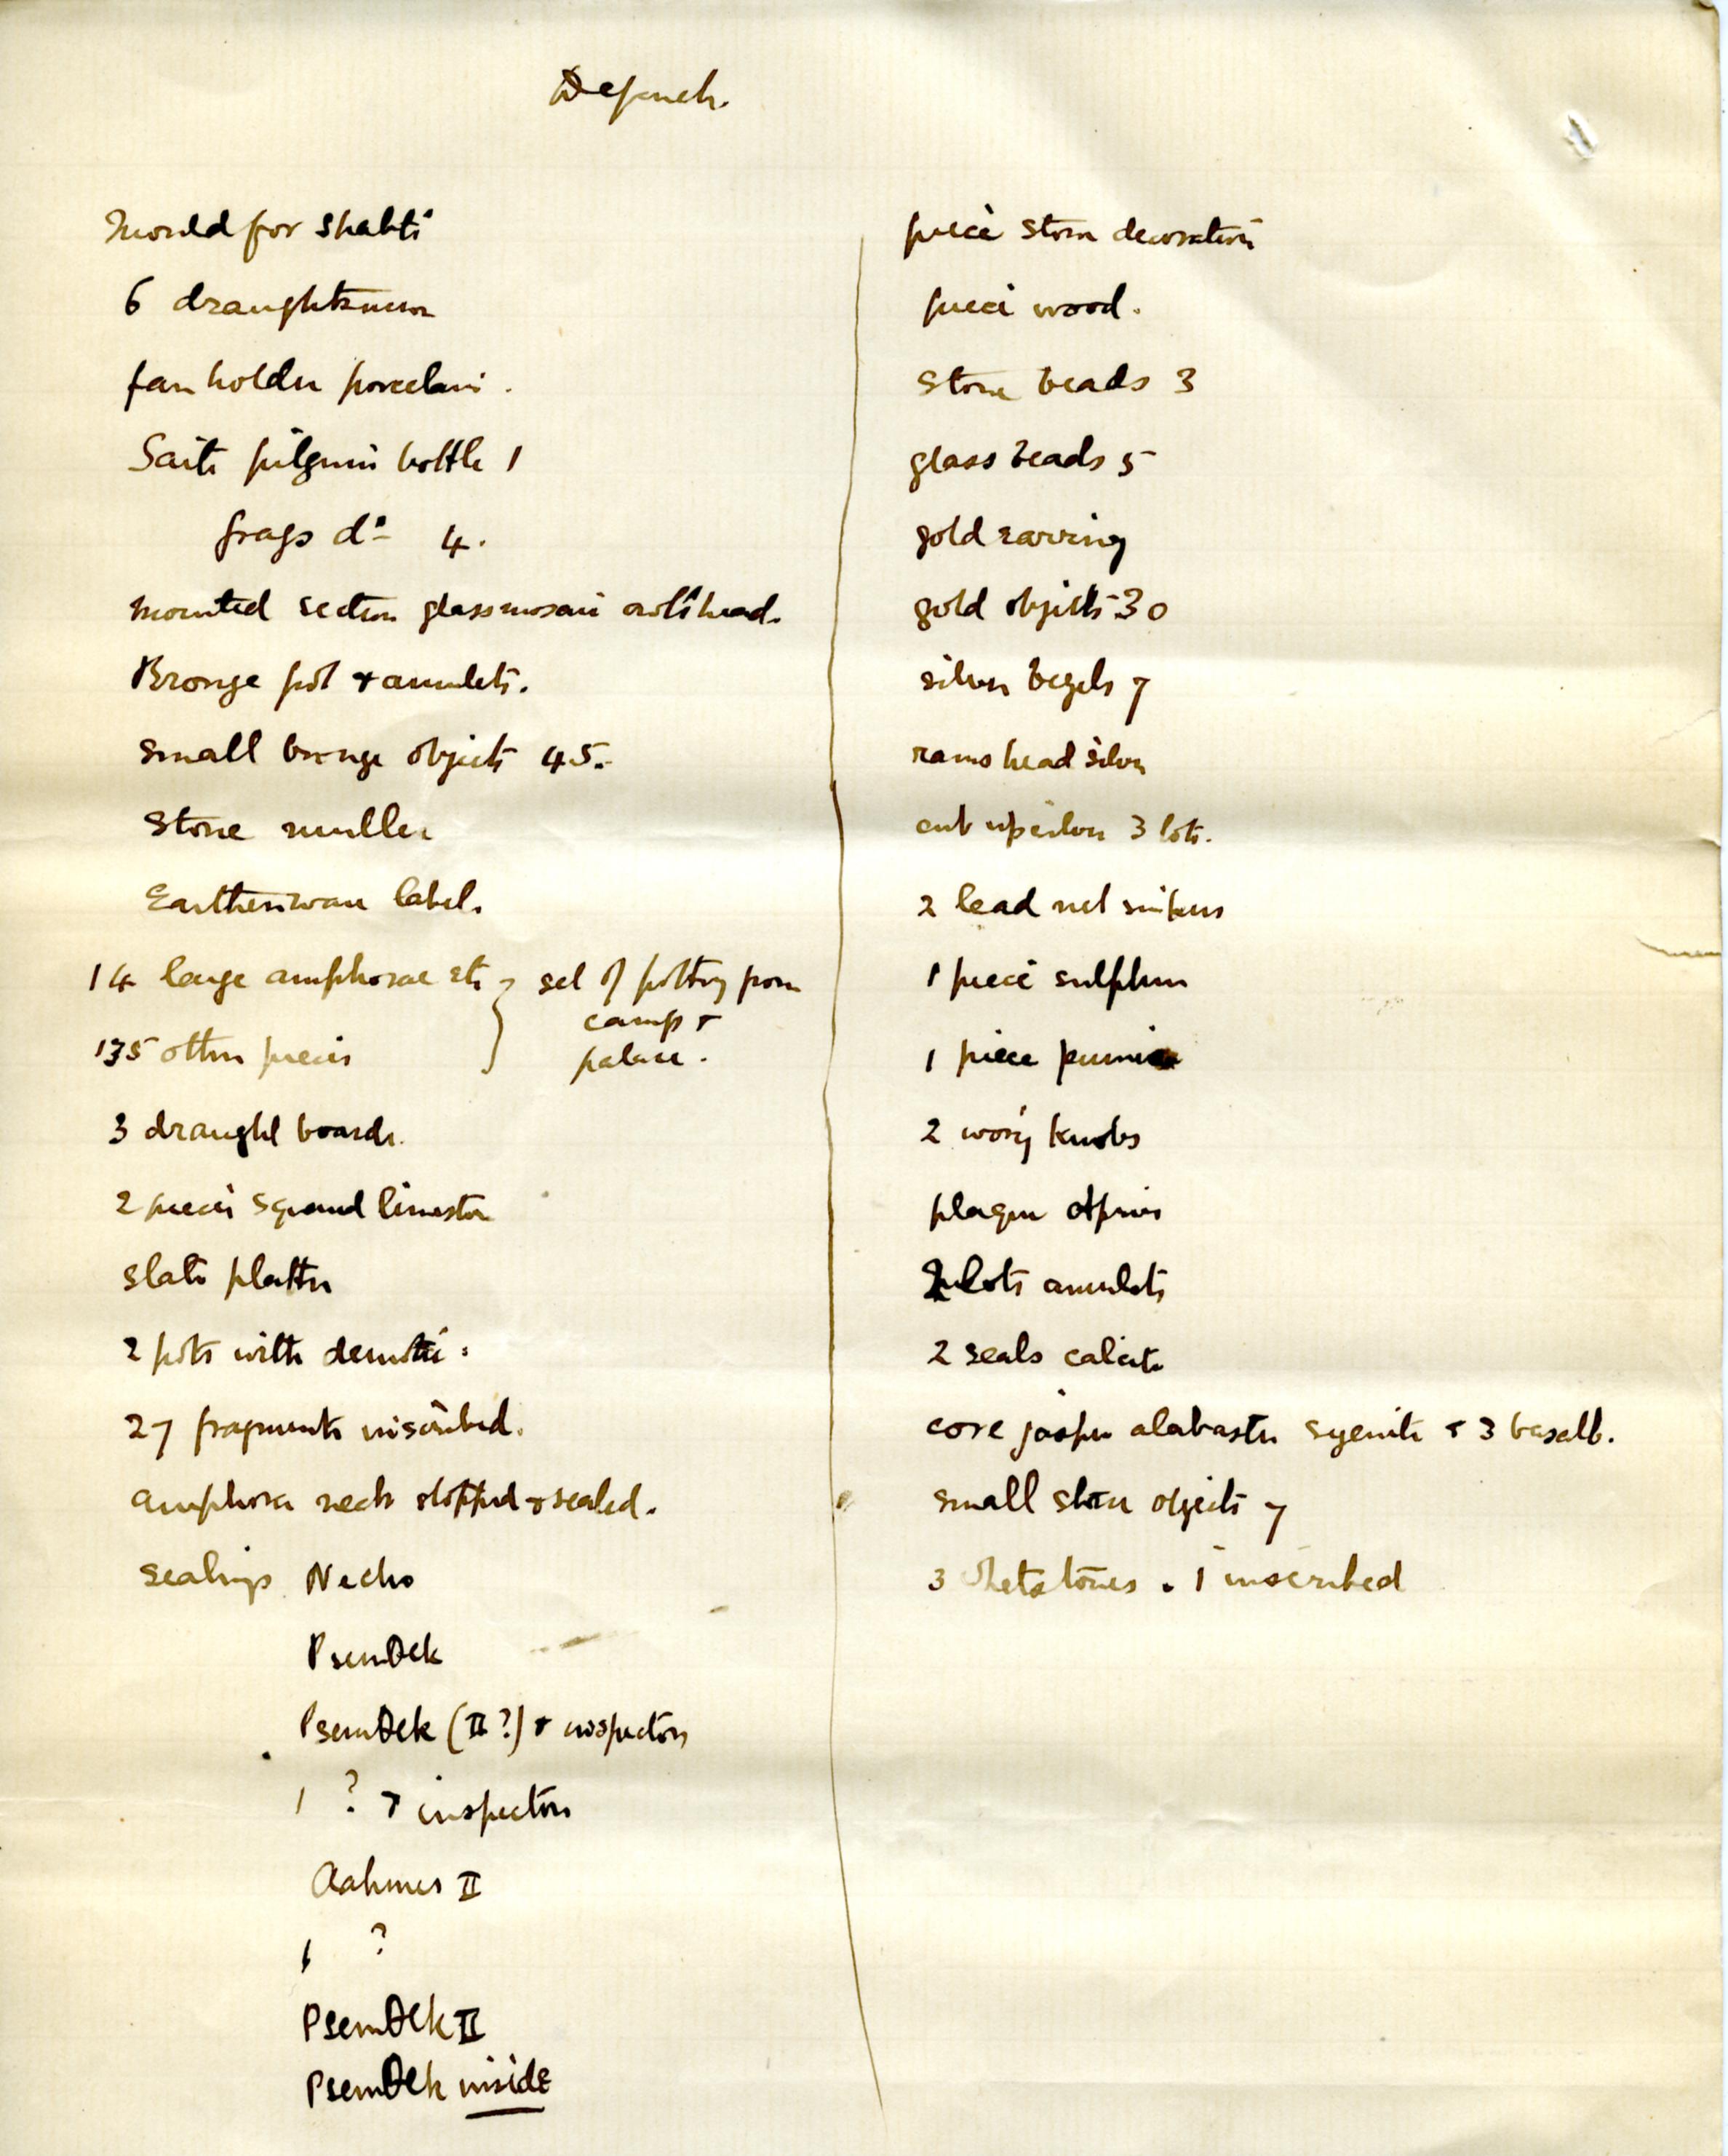 Defenneh.
Mould for shabti
6 draughtsmen
fan holder porcelain.
Saite pilgrim bottle 1
frags do 4.
mounted section glass mosaic owl's head.
Bronze pot + amulets.
small bronze objects 45.
Stone muller
Earthenware label.
14 large amphorae etc } set of pottery from
camp +
135 other pieces palace.
3 draught boards.
2 pieces squared limestone
slate platter
2 pots with demotic:
27 fragments inscribed.
amphora neck stopped + sealed.
sealings Necho
Psemθek
Psemθek (II?) + inspectors
1 ? + inspectors
Aahmes II
1 ?
Psemθek II
Psemθek inside
piece stone decoration
piece wood.
Stone beads 3
glass beads 5
gold earring
gold objects 30
silver bezels 7
rams head silver
cut up silver 3 lots.
2 lead net sinkers
1 piece sulphur
1 piece pumice
2 ivory knobs
plaque Apries
2 lots amulets
2 seals calcite
core jasper alabaster syenite + 3 basalt.
small stone objects 7
3 Whetstones . 1 inscribed